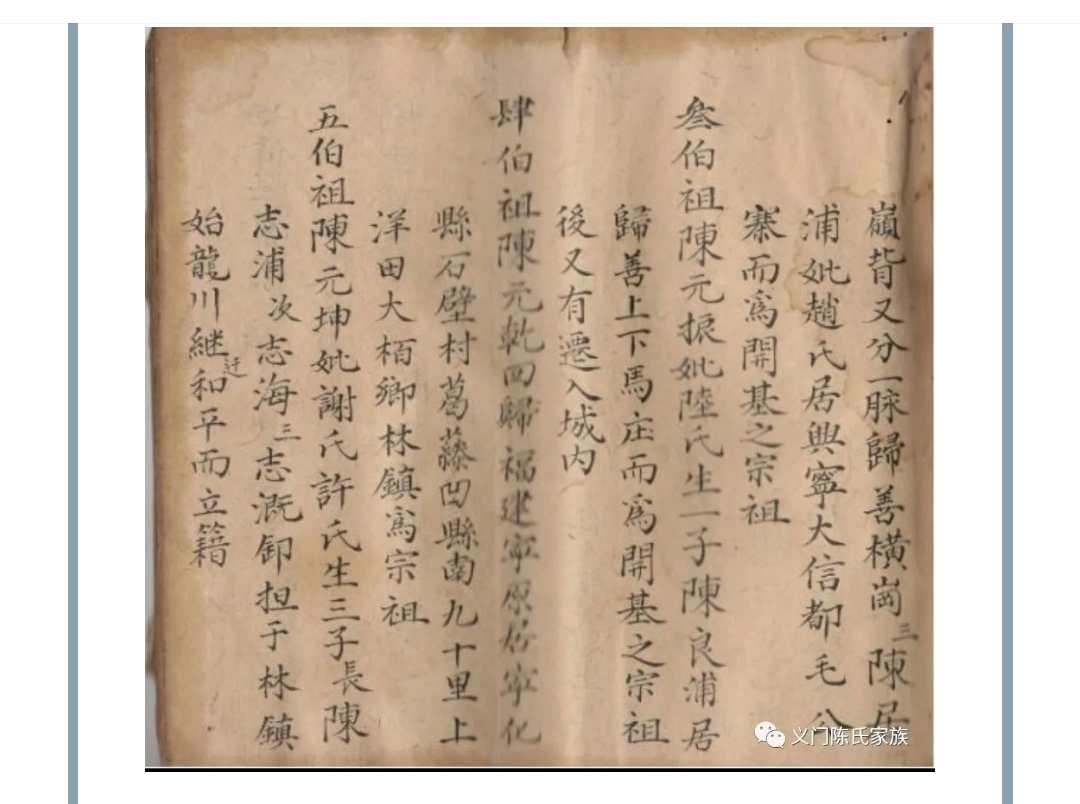 嶺背又分一脉歸善横崗三陳居
浦妣趙氏居興寧大信都毛公
寨而為開基之宗祖
叁伯祖陳元振妣陸氏生一子陳良浦居
歸善上下馬庄而為開基之宗祖
後又有遷入城内
肆伯祖陳元乾回歸福建寧原居寧化
縣石壁村葛藤凹縣南九十里上
洋田大栢鄉林鎮為宗祖
五伯祖陳元坤妣謝氏許氏生三子長陳
志浦次志海三志溉卸担于林鎮
始龍川継迁和平而立籍
义门陈氏家族